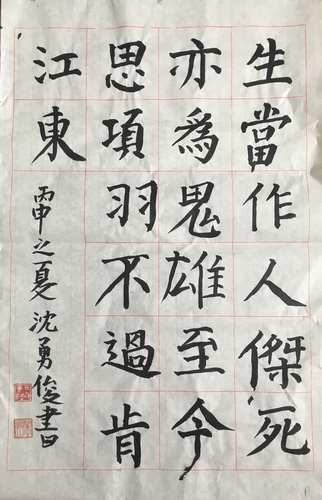 生當作人傑死
亦爲鬼雄至今
思項羽不過肯
江東
丙申之夏 沈勇俊書